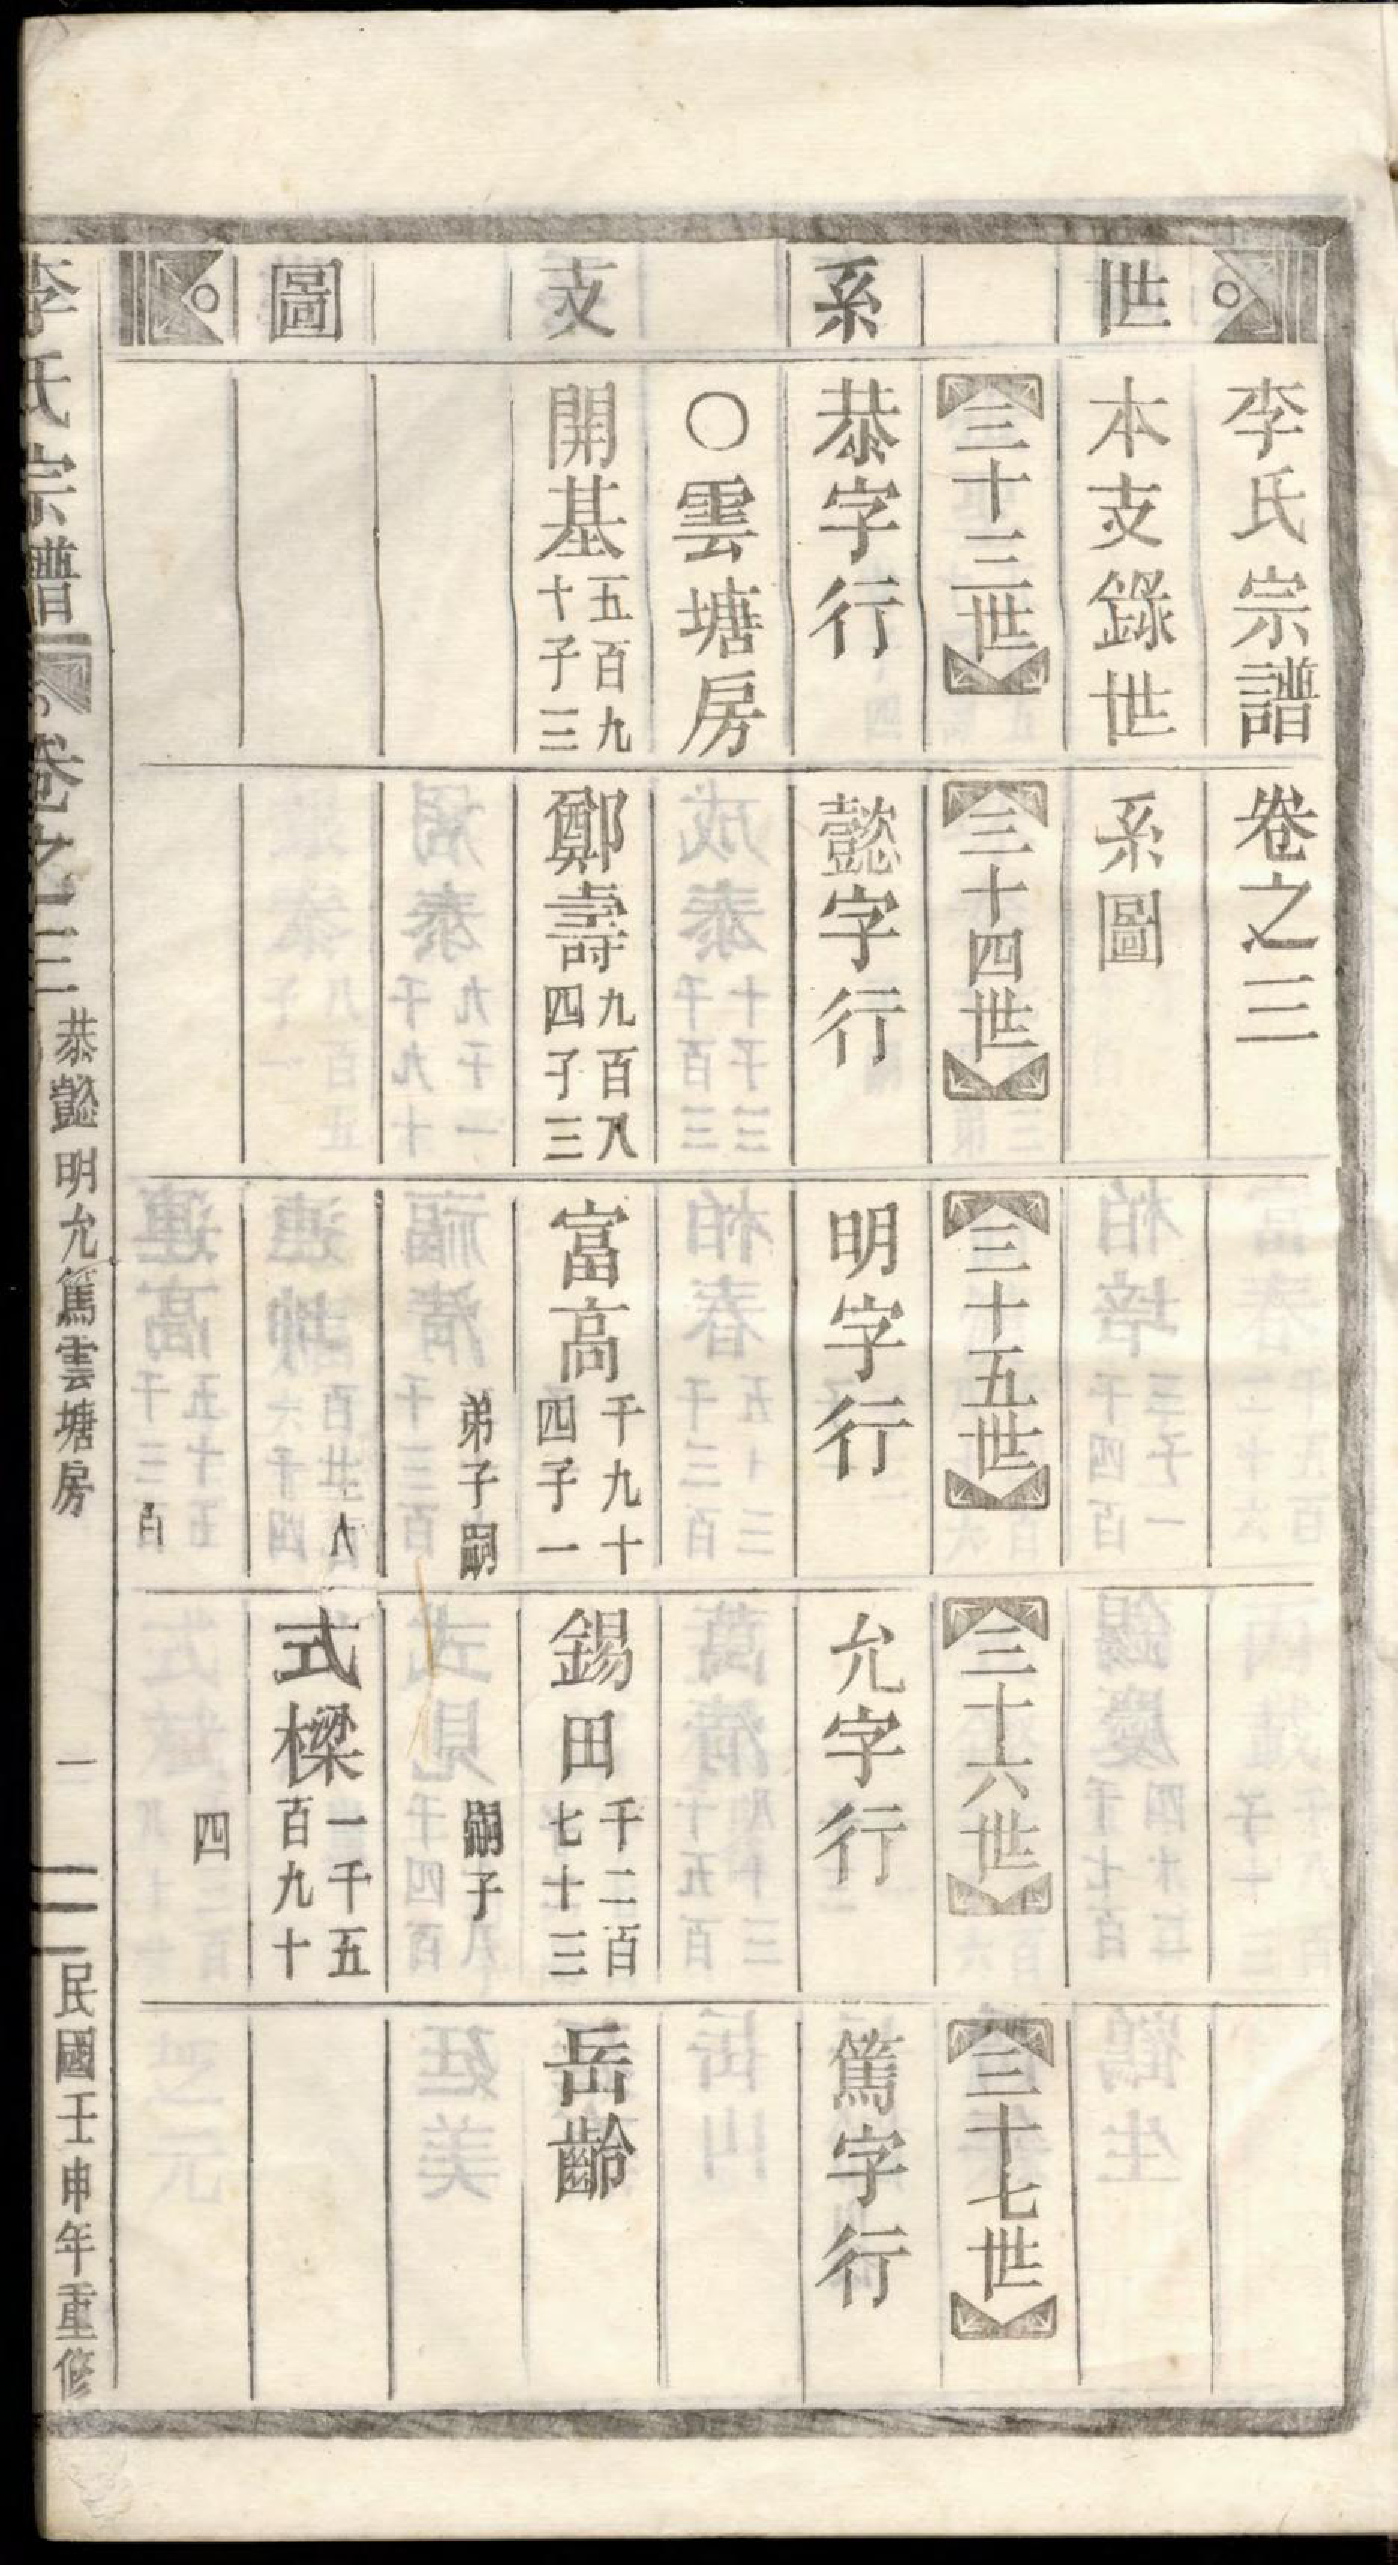 世系支圖
李氏宗譜 卷之三
本支錄世系圖
三十三世 三十四世 三十五世 三十六世 三十七世
恭字行 懿字行 明字行 允字行 篤字行
○雲塘房
開基 五百九十子三
鄭壽 九百八四子三
富高 千九十四子一
錫田 千二百七十三
岳齡
弟子嗣
嗣子
八
式樑 一千五百九十
四
百
李氏宗譜 卷之三 恭懿明允篤雲塘房 一 民國壬申年重修